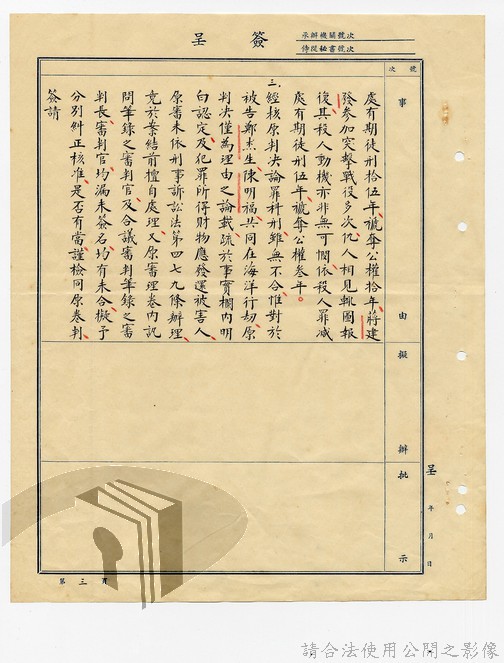 簽呈
承辦機關號次
侍從秘書號次
號次
事由
擬辦
批示
處有期徒刑拾伍年、褫奪公權拾年、蔣建
發參加突擊戰役多次、仇人相見、輒圖報
復、其殺人動機亦非無可憫、依殺人罪減
處有期徒刑伍年、褫奪公權參年。
三、經核原判決論罪科刑、雖無不合、惟對於
被告鄭杰生、陳明福、共同在海洋行劫、原
判決僅為理由之論載、疏於事實欄內明
白認定、及犯罪所得財物應發還被害人、
原審未依刑事訴訟法第四七九條辦理、
竟於案結前擅自處理、又原審理卷內訊
問筆錄之審判官、及合議審判筆錄之審
判長、審判官、均漏未簽名、均有未合、擬予
分別糾正核准、是否有當、謹檢同原卷判、
簽請
呈
年月日
第三頁
請合法使用公開之影像